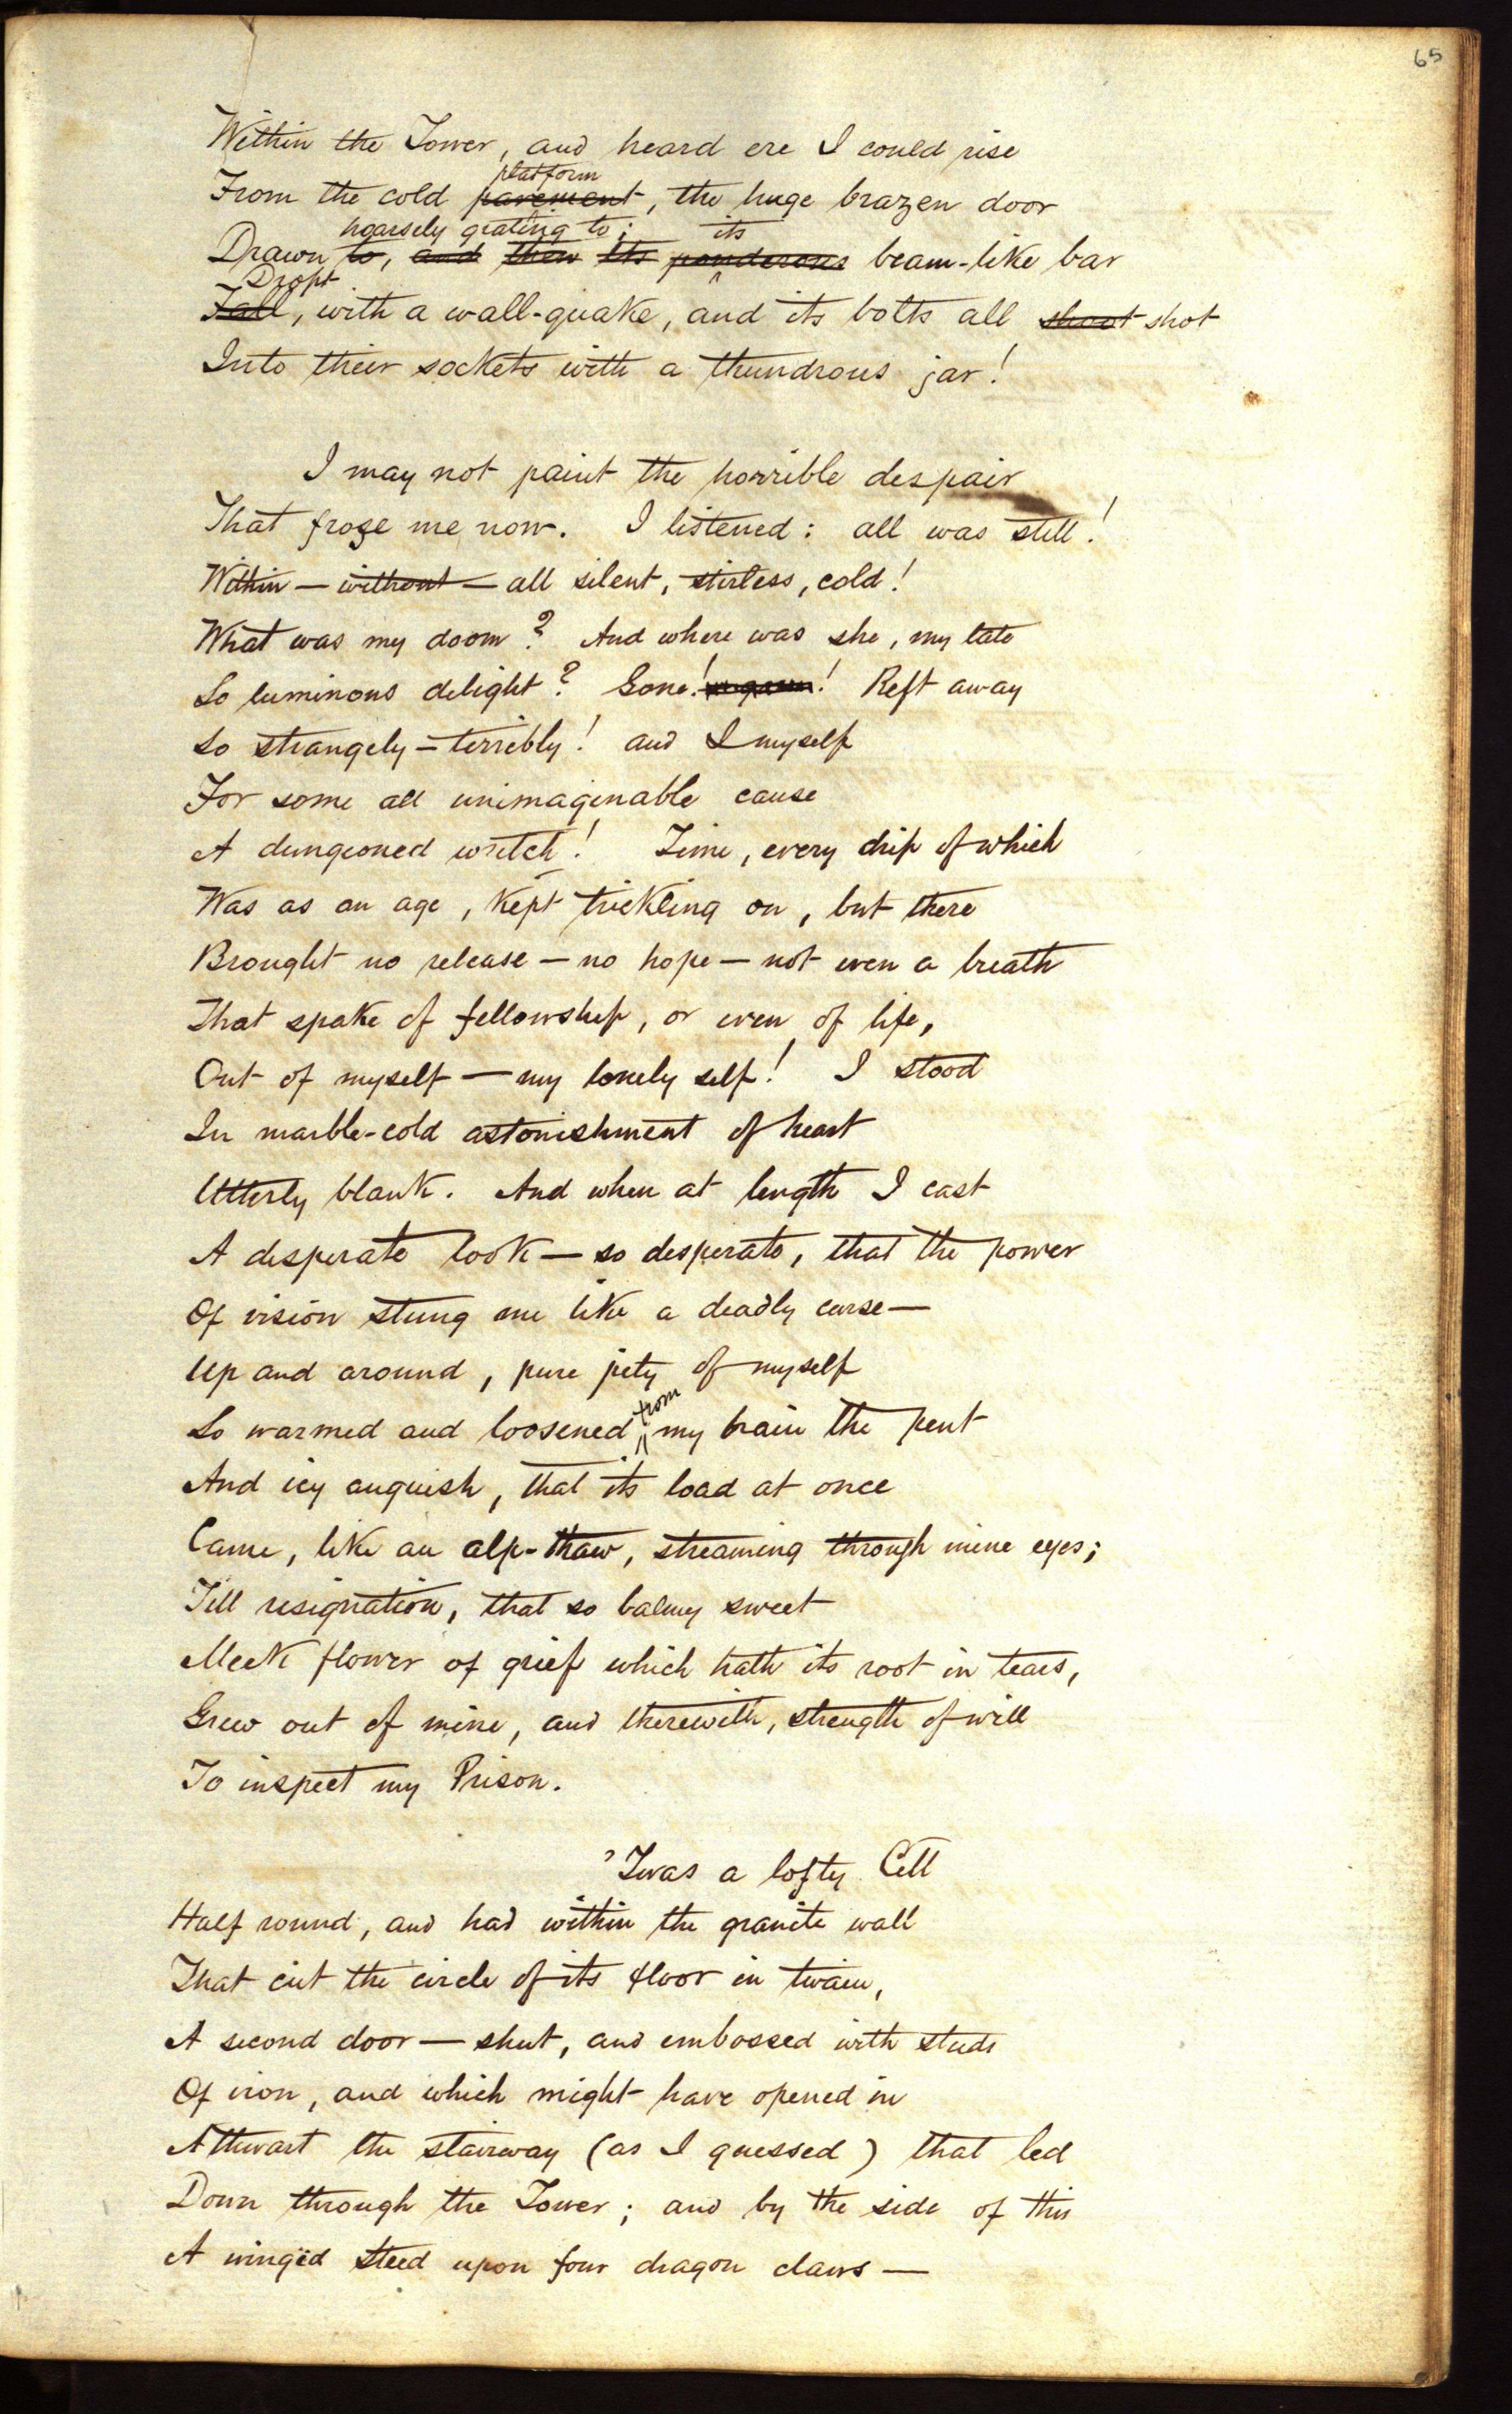 65
Within the Tower, and heard ere I could rise
platform
From the cold pavement, the huge brazen door
hoarsely grating to; its
Drawn to, and then its ponderous beam-like bar
Dropt
Fall, with a wall-quake, and its bolts all shoot shot
Into their sockets with a thundrous jar!
I may not paint the horrible despair
That froze me now. I listened: all was still!
Within — without — all silent, stirless, cold!
What was my doom? And where was she, my late
So luminous delight? Gone! ! Reft away
So strangely – terribly! and I myself
For some all unimaginable cause
A dungeoned wretch! Time, every drip of which
Was as an age, kept trickling on, but there
Brought no release — no hope — not even a breath
That spake of fellowship, or even of life,
Out of myself — my lonely self! I stood
In marble-cold astonishment of heart
Utterly blank. And when at length I cast
A desperate look — so desperate, that the power
Of vision stung me like a deadly curse —
Up and around, pure pity of myself
from
So warmed and loosened my brain the pent
And icy anguish, that its load at once
Came, like an alp-thaw, streaming through mine eyes;
Till resignation, that so balmy sweet
Meek flower of grief which hath its root in tears,
Grew out of mine, and therewith, strength of will
To inspect my Prison.
'Twas a lofty Cell
Half round, and had within the granite wall
That cut the circle of its floor in twain,
A second door — shut, and embossed with studs
Of iron, and which might have opened in
Athwart the stairway (as I guessed) that led
Down through the Tower; and by the side of this
A wingëd steed upon four dragon claws —